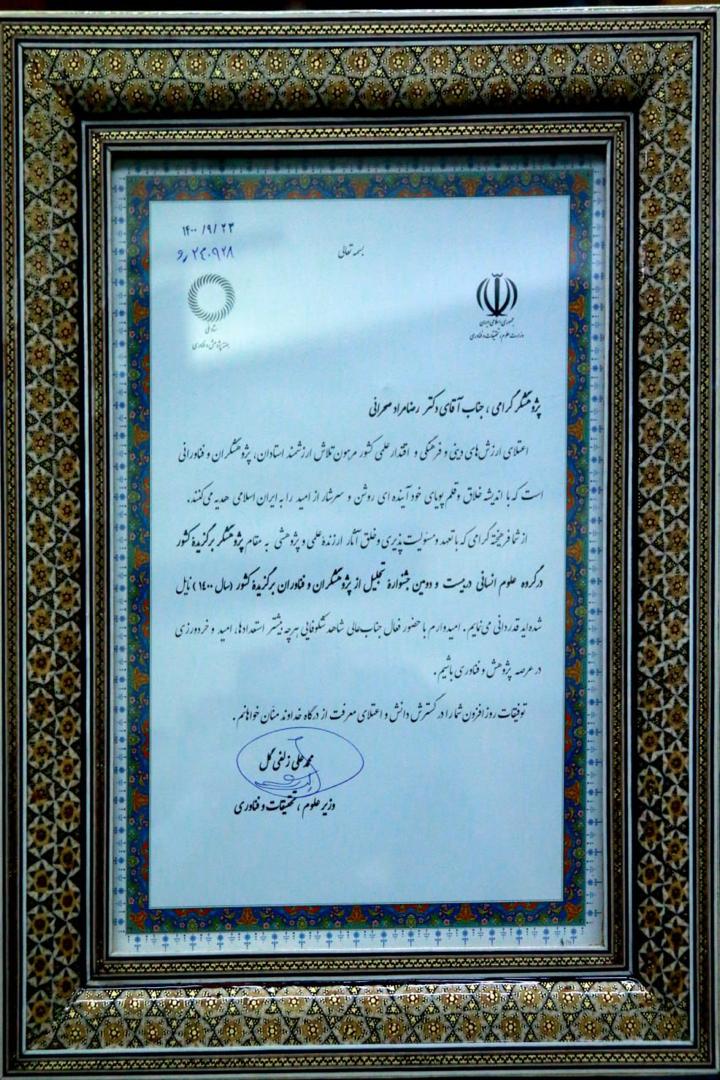 ۱۴۰۰/۹/۲۳
۲۳۰۹۲۸/و
بسمه تعالی
ستاد ملی
هفته پژوهش و فناوری
جمهوری اسلامی ایران
وزارت علوم، تحقیقات و فناوری
پژوهشگر گرامی، جناب آقای دکتر رضامراد صحرائی
اعتلای ارزش‌های دینی و فرهنگی و اقتدار علمی کشور مرهون تلاش ارزشمند استادان، پژوهشگران و فناورانی
است که با اندیشه خلاق و قلم پویای خود آینده ای روشن و سرشار از امید را به ایران اسلامی هدیه می‌کنند.
از شما فرهیخته گرامی که با تعهد و مسئولیت پذیری و خلق آثار ارزنده علمی و پژوهشی به مقام پژوهشگر برگزیدهٔ کشور
در گروه علوم انسانی در بیست و دومین جشنوارهٔ تجلیل از پژوهشگران و فناوران برگزیدهٔ کشور (سال ۱۴۰۰) نایل
شده‌اید قدردانی می‌نمایم. امیدوارم با حضور فعال جناب‌عالی شاهد شکوفایی هرچه بیشتر استعدادها، امید و خردورزی
در عرصه پژوهش و فناوری باشیم.
توفیقات روزافزون شما را در گسترش دانش و اعتلای معرفت از درگاه خداوند منان خواهانم.
محمدعلی زلفی گل
وزیر علوم، تحقیقات و فناوری